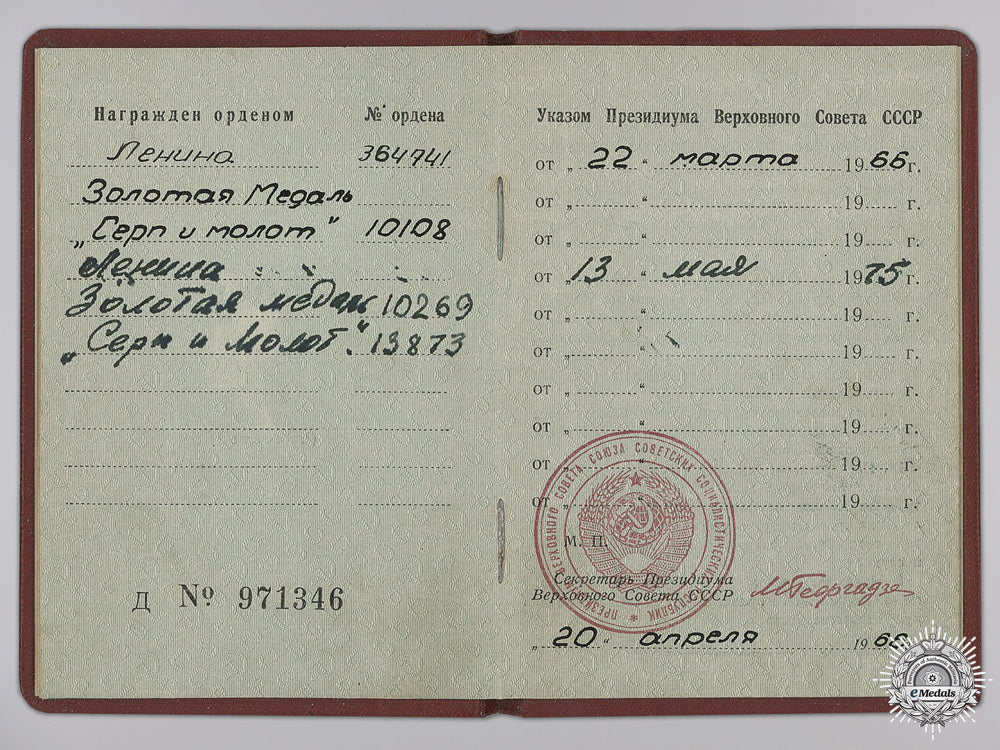 Награжден орденом № ордена
Ленина 364741
Золотая Медаль
„Серп и молот" 10108
Ленина
Золотая медаль 10269
„Серп и Молот". 13873
Д № 971346
Указом Президиума Верховного Совета СССР
от „22“ марта 1966 г.
от „ “ 19 г.
от „ “ 19 г.
от „13“ мая 1975 г.
от „ “ 19 г.
от „ “ 19 г.
от „ “ 19 г.
от „ “ 19 г.
от „ “ 19 г.
от „ “ 19 г.
ПРЕЗИДИУМ ВЕРХОВНОГО СОВЕТА СОЮЗА СОВЕТСКИХ СОЦИАЛИСТИЧЕСКИХ РЕСПУБЛИК
М. П.
Секретарь Президиума
Верховного Совета СССР
М Георгадзе
„20“ апреля 196
eMedals